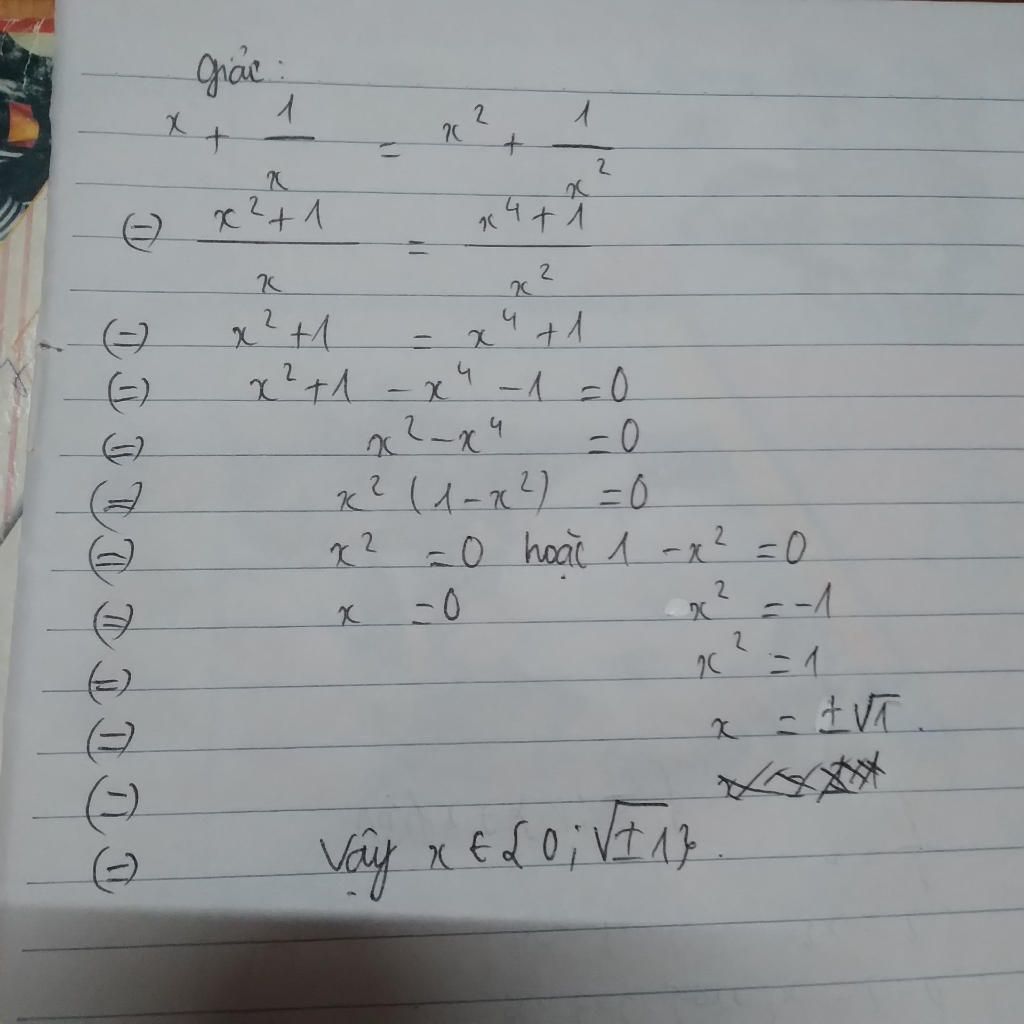 Giải :
x + 1/x = x² + 1/x²
(=) (x² + 1)/x = (x⁴ + 1)/x²
(=) x² + 1 = x⁴ + 1
(=) x² + 1 - x⁴ - 1 = 0
(=) x² - x⁴ = 0
(=) x² (1 - x²) = 0
(=) x² = 0 hoặc 1 - x² = 0
(=) x = 0 x² = -1
(=) x² = 1
(=) x = ±√1.
(=)
(=) Vậy x ∈ {0; √±1}.